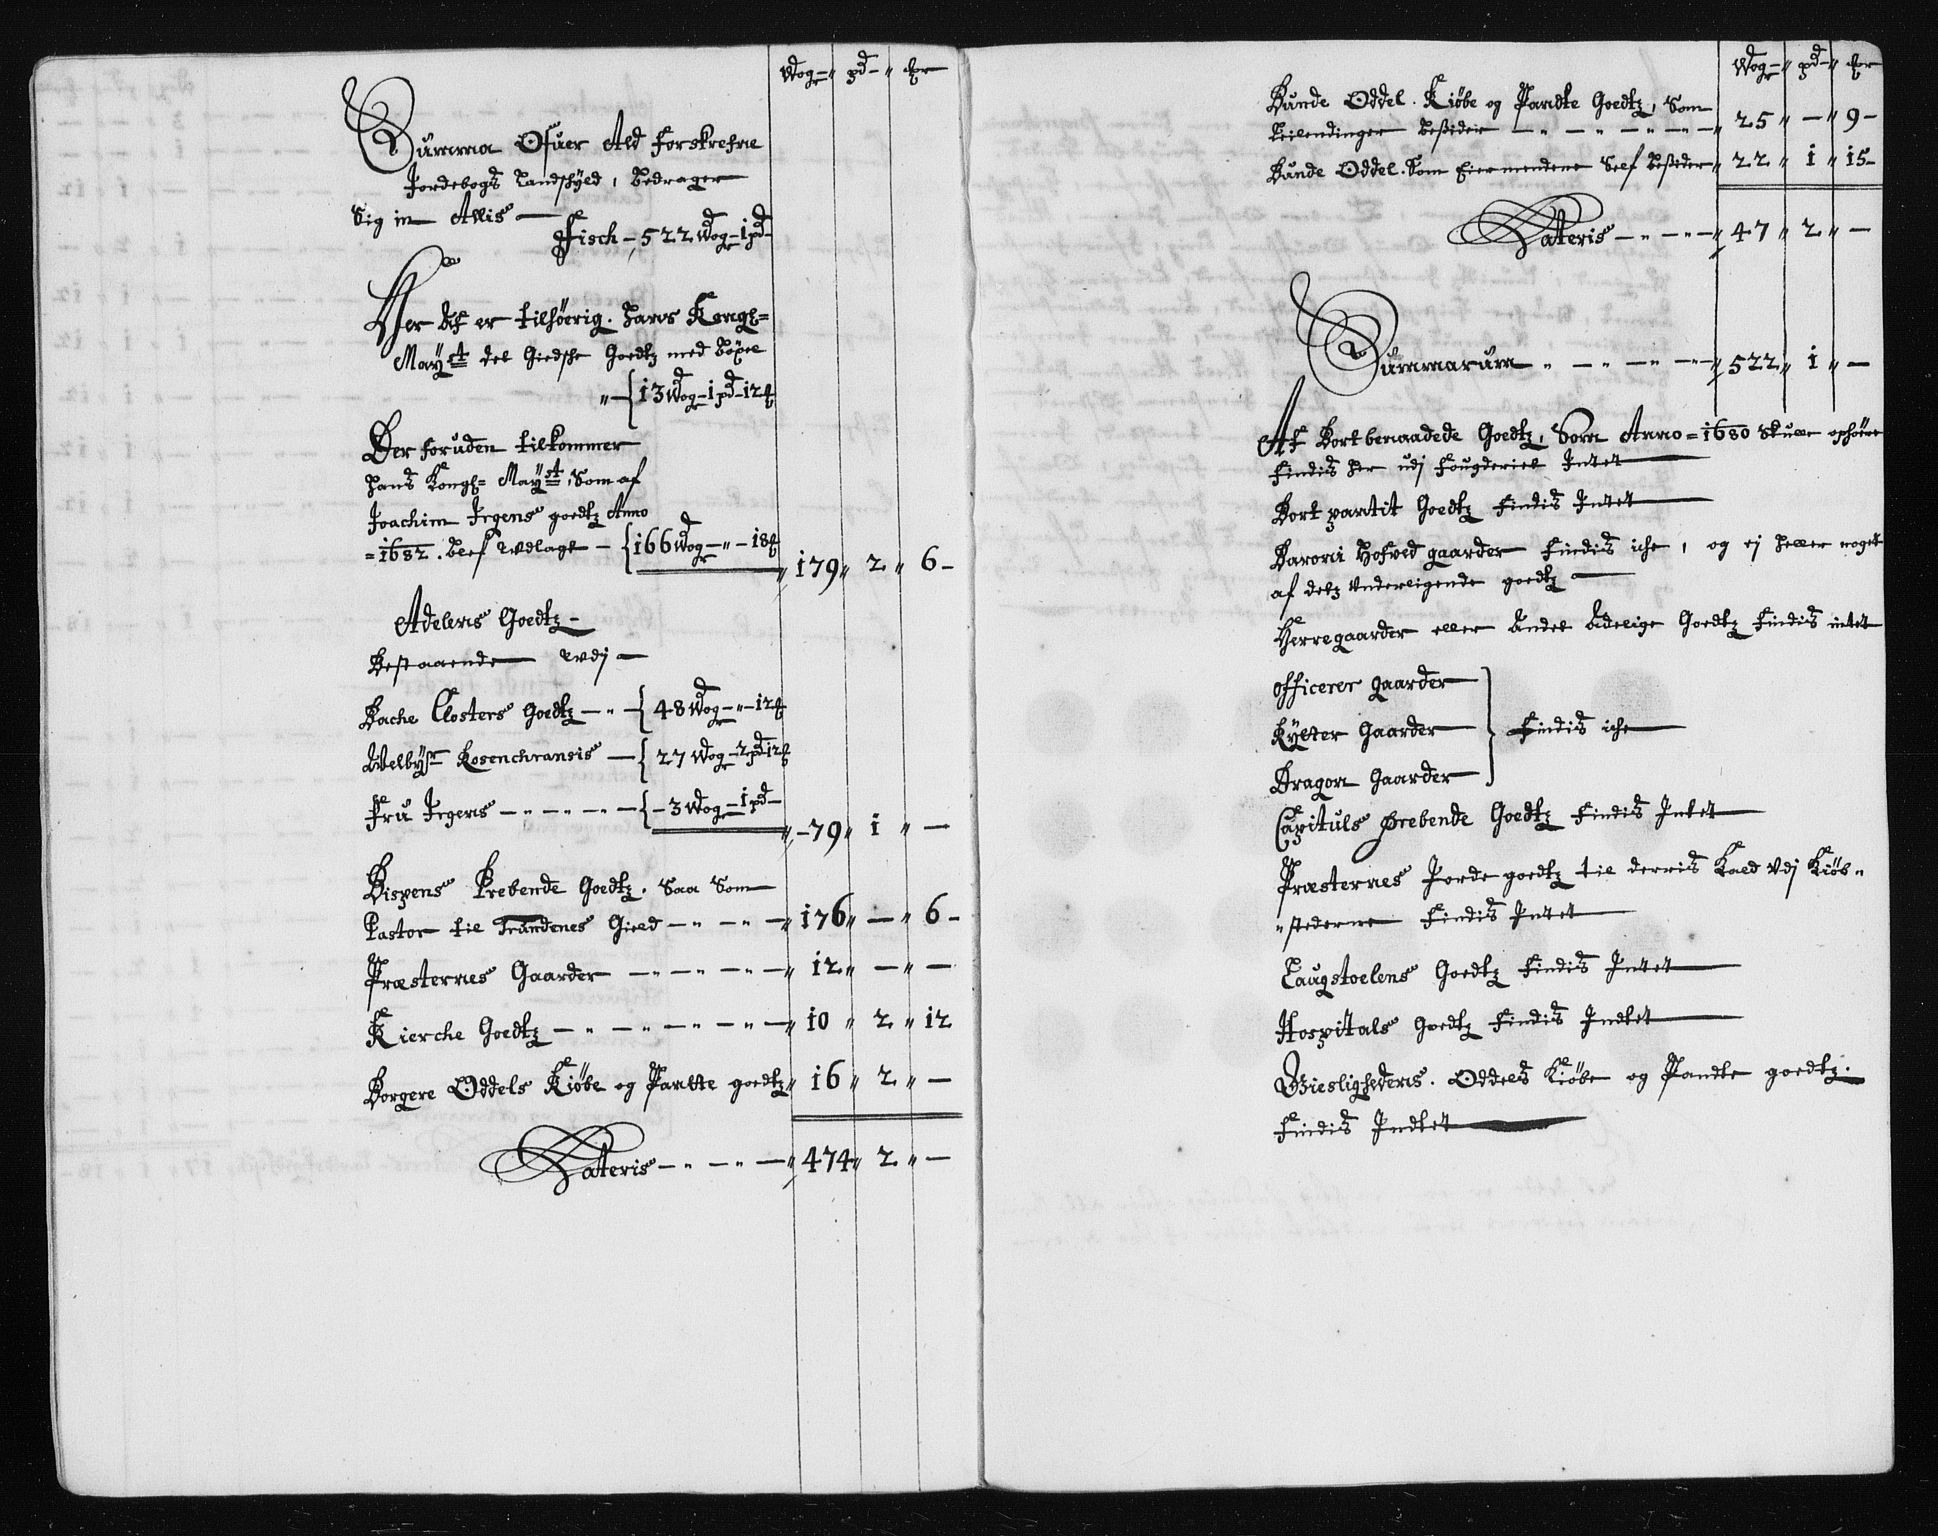 Wog - pd - mr
Summa Ofuer Ald Forskrefne
Jordebogs Landskyld, Bedrager
Sig in Allis -
Fisch - 522 Wog - 1 pd -
Her Af er tilhøerig. Hans Kongl=
Mayst det Giedsche Goedtz med Bøxel
13 Wog - 1 pd - 12
Der foruden tilkommer
Hans Kongl= Mayst, Som af
Joachim Irgens goedtz Anno
=1682. blef udlagt - 166 Wog - " - 18 " 179 " 2 " 6 -
Adelens Goedtz -
Bestaaende udj -
Bache Closters Goedtz - " - 48 Wog - " - 12
Welbyr Rosenchransis - 27 Wog - 2 pd 12
Fru Irgens - " - " - " - 3 Wog - 1 pd - " - 79 " 1 " -
Bispens Prebende Goedtz. Saa Som
Pastor til Trundenes Gield - " - " - " 176 " - " 6 -
Præsternes Gaarder - " - " - " - " 12 " - " -
Kierche Goedtz - " - " - " - " - " 10 " 2 " 12
Borgere Oddels Kiøbe og Pantte goedtz " 16 " 2 " -
Lateris - " - " - " 474 " 2 " -
Wog - " pd - " mr
Bunde Oddel. Kiøbe og Pandte Goedtz, Som
Leilendinger Besider - " - " - " - " 25 " - " 9 -
Bunde Oddel. Som Eiermendene Self Besider " 22 " 1 " 15 -
Lateris - " - " - " 47 " 2 " -
Summarum " - " - " - " 522 " 1 " -
Af Bortbenaadede Goedtz, Som Anno =1680 Skulle ophøre
Findis her udj Fougderiet Intet
Bort pantit Goedtz Findis Intet
Baroni Hofved gaarder Findis iche, og ej heller noget
af detz Underligende goedtz
Herregaarder eller Andet Adelige Goedtz Findis intet
Officerer Gaarder
Rytter Gaarder Findis iche
Dragon Gaarder
Capituls Prebende Goedtz Findis Intet
Præsternes Jorde goedtz til derris Kald Udj Kiøb "
" stederne Findis Intet
Laugstoelens Goedtz Findis Intet
Hospitals Goedtz Findis Indtet
Giesligheders. Oddels Kiøbe og Pandte goedtz.
Findis Indtet